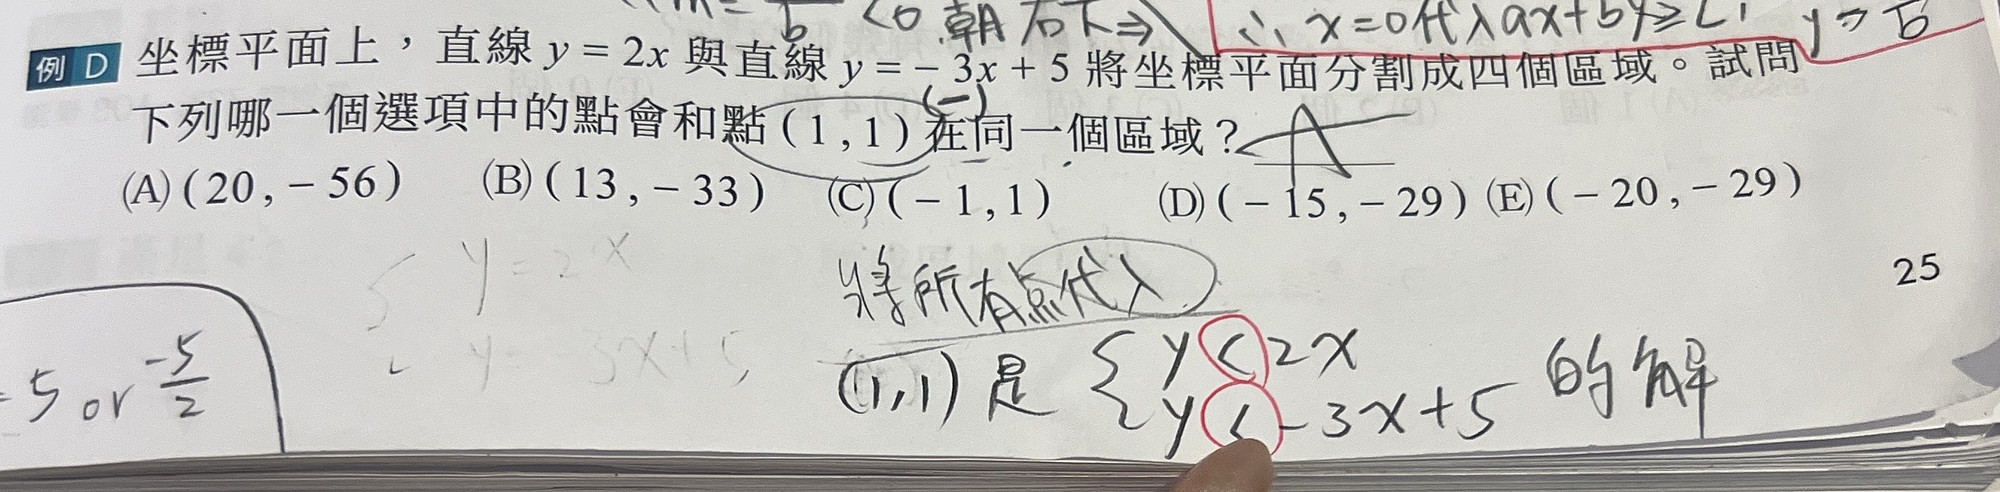 <0 朝右下⇒ ∴ x=0代入ax+by≥c,
例 D 坐標平面上，直線 y = 2x 與直線 y = − 3x + 5 將坐標平面分割成四個區域。試問
(−)
下列哪一個選項中的點會和點 ( 1 , 1 ) 在同一個區域？
(A) ( 20 , − 56 ) (B) ( 13 , − 33 ) (C) ( − 1 , 1 ) (D) ( − 15 , − 29 ) (E) ( − 20 , − 29 )
y = 2x
y = -3x+5
將所有点代入
25
5 or -5/2
(1,1) 是 { y < 2x
y < -3x+5 的解